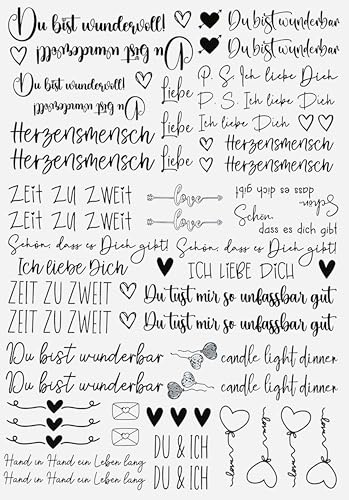 Du bist wundervoll!
Du bist wunderbar
Du bist wundervoll!
Du bist wunderbar
Du bist wundervoll!
Liebe
P. S. Ich liebe Dich
Du bist wundervoll!
P. S. Ich liebe Dich
Liebe
Ich liebe Dich
Herzensmensch
Herzensmensch
Herzensmensch
Liebe
Herzensmensch
Zeit zu zweit
love
Schön,
dass es dich gibt
Zeit zu zweit
love
Schön,
dass es dich gibt
Schön, dass es Dich gibt!
Schön, dass es Dich gibt!
Ich liebe Dich
ICH LIEBE DICH
ZEIT ZU ZWEIT
Du tust mir so unfassbar gut
ZEIT ZU ZWEIT
Du tust mir so unfassbar gut
Du bist wunderbar
candle light dinner
Du bist wunderbar
candle light dinner
DU & ICH
Hand in Hand ein Leben lang
Hand in Hand ein Leben lang
DU & ICH